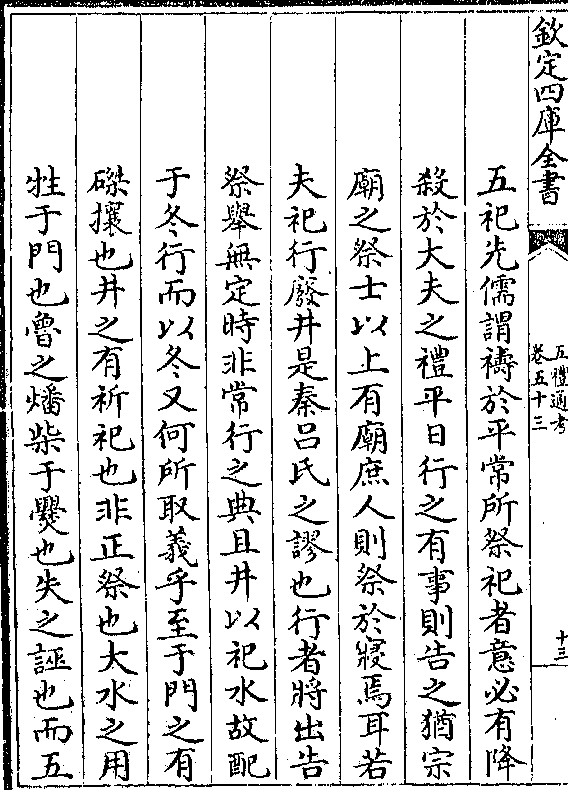 欽定四庫全書
五禮通考
卷五十三
十三
五祀先儒謂禱於平常所祭祀者意必有降
殺於大夫之禮平日行之有事則告之猶宗
廟之祭士以上有廟庶人則祭於寢焉耳若
夫祀行廢井是秦呂氏之謬也行者將出告
祭舉無定時非常行之典且井以祀水故配
于冬行而以冬又何所取義乎至于門之有
磔攘也井之有祈祀也非正祭也大水之用
牲于門也魯之燔柴于㸑也失之誣也而五